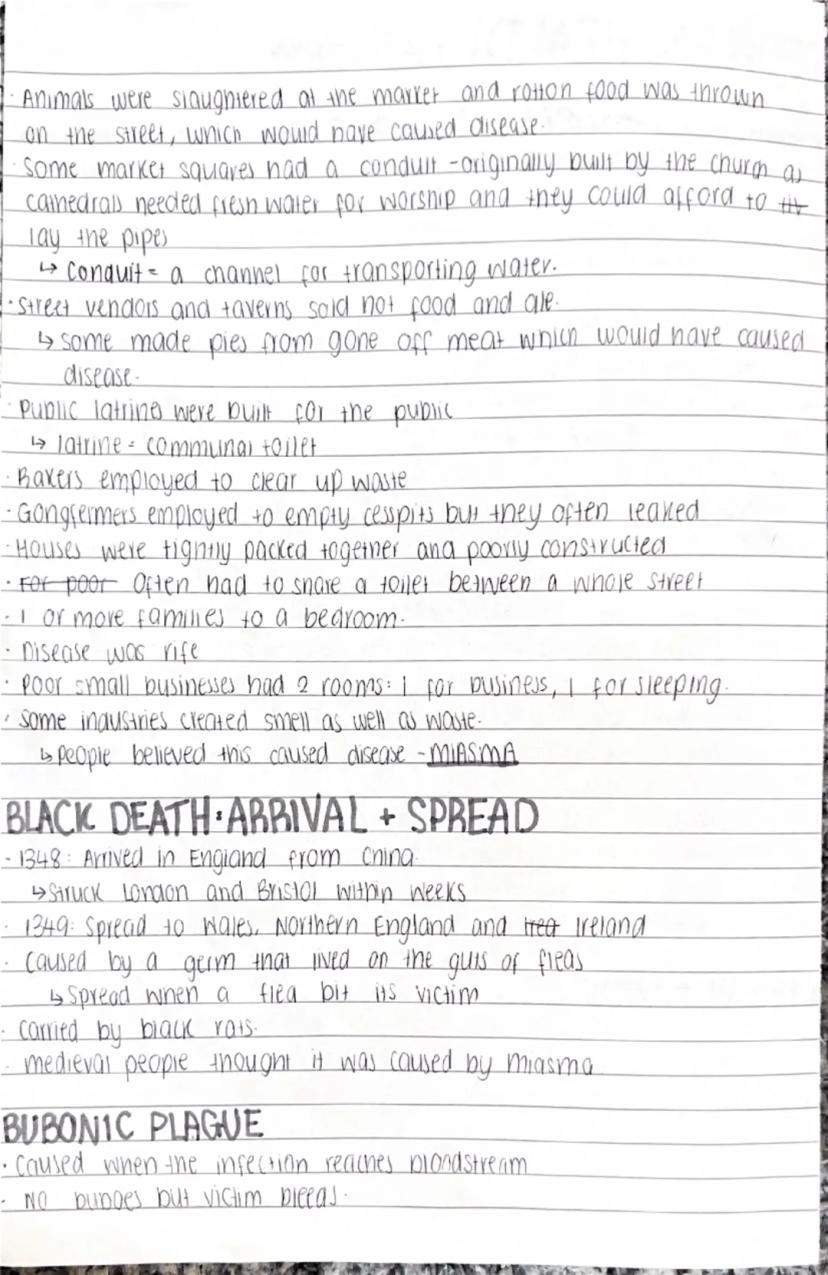 · Animals were slaughtered at the market and rotton food was thrown
on the street, which would have caused disease.
· Some market squares had a conduit - originally built by the church as
cathedrals needed fresh water for worship and they could afford to
lay the pipes
↳ Conduit = a channel for transporting water.
· Street vendors and taverns sold hot food and ale.
↳ some made pies from gone off meat which would have caused
disease.
· Public latrines were built for the public
↳ latrine = communal toilet
· Rakers employed to clear up waste
· Gongfermers employed to empty cesspits but they often leaked
· Houses were tightly packed together and poorly constructed
· ~~For poor~~ Often had to share a toilet between a whole street
· 1 or more families to a bedroom.
· Disease was rife
· Poor small businesses had 2 rooms: 1 for business, 1 for sleeping.
· Some industries created smell as well as waste.
↳ people believed this caused disease - MIASMA
BLACK DEATH: ARRIVAL + SPREAD
- 1348: Arrived in England from China.
↳ Struck London and Bristol within weeks
· 1349: Spread to Wales, Northern England and Ireland
· Caused by a germ that lived on the guts of fleas
↳ Spread when a flea bit its victim
· Carried by black rats.
· Medieval people thought it was caused by miasma
BUBONIC PLAGUE
· Caused when the infection reaches bloodstream
- No buboes but victim bleeds.